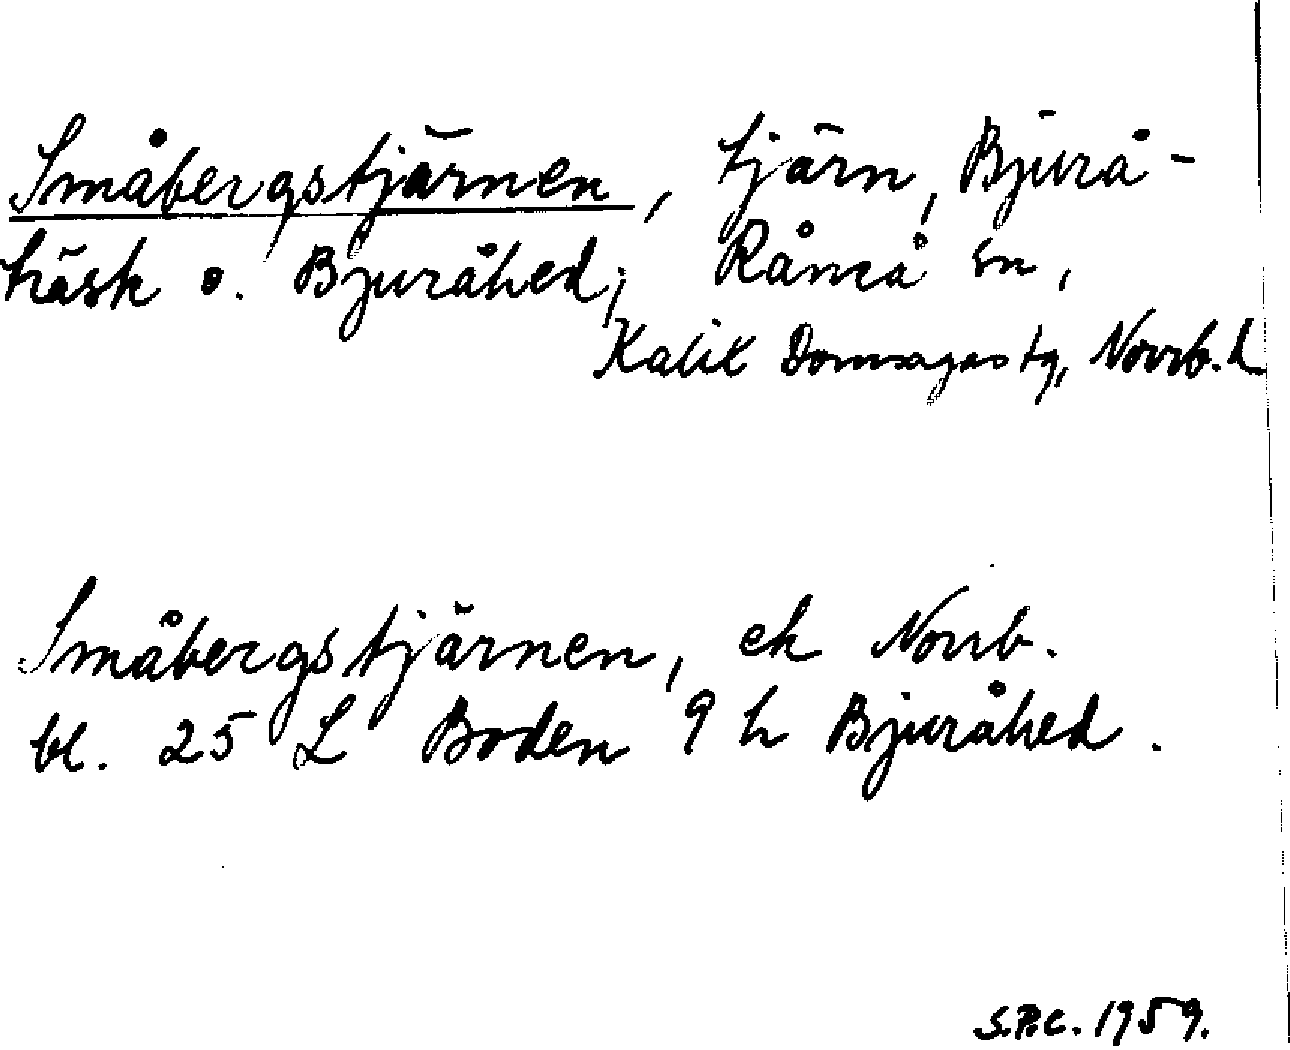 Småbergstjärnen, tjärn, Bjurå-
träsk o. Bjuråhed, Råneå sn,
Kalix Domsagas tg, Norrb. l
Småbergstjärnen, ek Norrb.
bl. 25 L Boden 9 h Bjuråhed.
S.P.C. 1959.